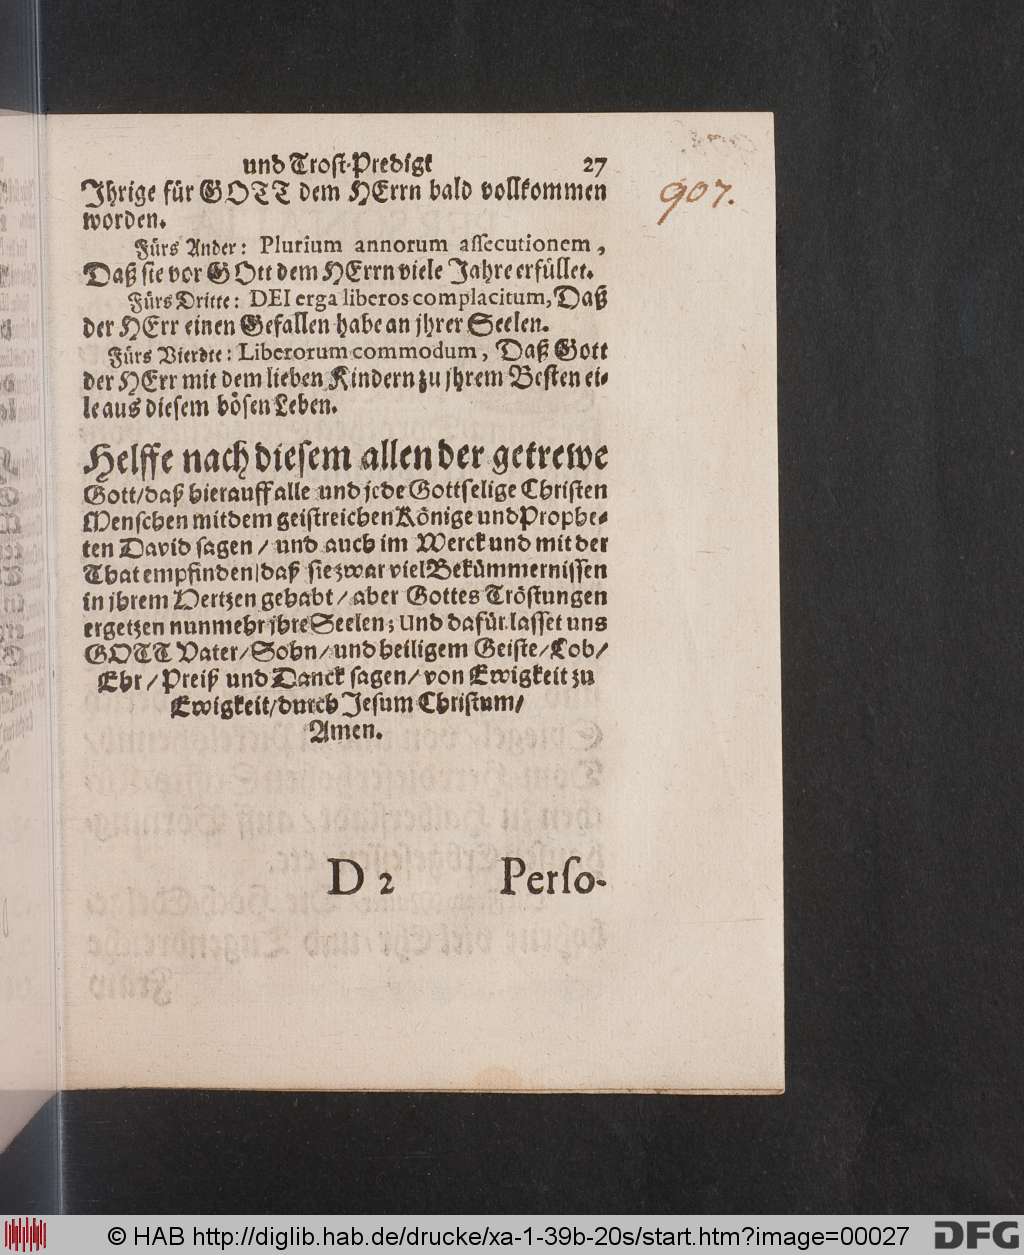 und Trost-Predigt 27
907.
Jhrige für GOTT dem HErrn bald vollkommen
worden.
Fürs Ander: Plurium annorum assecutionem,
Daß sie vor GOtt dem HErrn viele Jahre erfüllet.
Fürs Dritte: DEI erga liberos complacitum, Daß
der HErr einen Gefallen habe an jhrer Seelen.
Fürs Vierdte: Liberorum commodum, Daß Gott
der HErr mit dem lieben Kindern zu jhrem Besten ei-
le aus diesem bösen Leben.
Helffe nach diesem allen der getrewe
Gott/daß hierauff alle und jede Gottselige Christen
Menschen mit dem geistreichen Könige und Prophe-
ten David sagen / und auch im Werck und mit der
That empfinden/daß sie zwar viel Bekümmernissen
in jhrem Hertzen gehabt/ aber Gottes Tröstungen
ergetzen nunmehr jhre Seelen; Und dafür lasset uns
GOTT Vater/Sohn/und heiligem Geiste/Lob/
Ehr/Preiß und Danck sagen/von Ewigkeit zu
Ewigkeit/durch Jesum Christum/
Amen.
D 2 Perso-
© HAB http://diglib.hab.de/drucke/xa-1-39b-20s/start.htm?image=00027
DFG